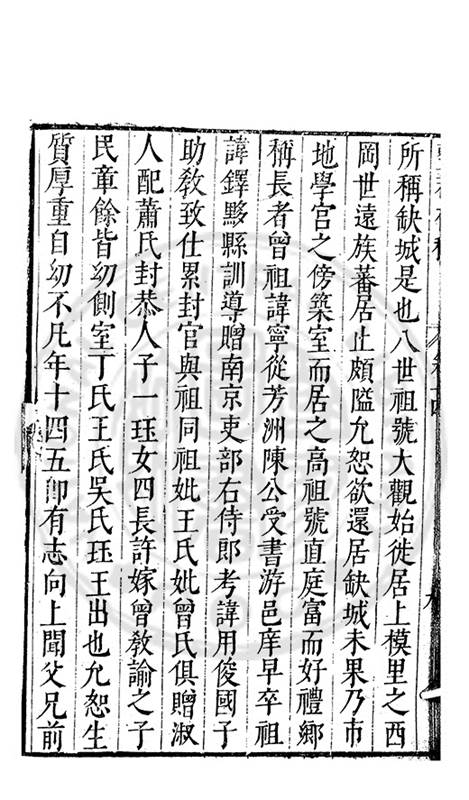 所稱缺城是也八世祖號大觀始徙居上模里之西
岡世遠族蕃居止頗隘允恕欲還居缺城未果乃市
地學宮之傍築室而居之高祖號直庭富而好禮鄉
稱長者曾祖諱寧從芳洲陳公受書游邑庠早卒祖
諱鐸黟縣訓導贈南京吏部右侍郎考諱用俊國子
助敎致仕累封官與祖同祖妣王氏妣曾氏俱贈淑
人配蕭氏封恭人子一珏女四長許嫁曾敎諭之子
民章餘皆幼側室丁氏王氏吳氏珏王出也允恕生
質厚重自幼不凡年十四五卽有志向上聞父兄前